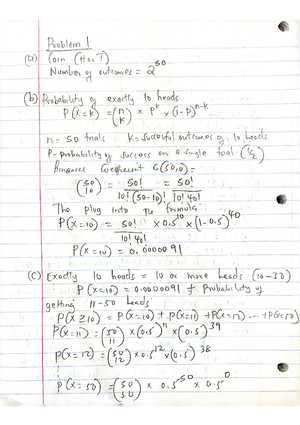 Problem 1
(a) Coin (H or T)
Number of outcomes = 2^50
(b) Probability of exactly 10 heads
P(X=k) = (n k) × p^k × (1-p)^n-k
n = 50 trials k = successful outcomes of 10 heads
P - probability of success on a single trial (1/2)
Binomial Coefficient C(50,10):
(50 10) = 50! / 10!(50-10)! = 50! / 10!40!
The plug into the formula
P(X=10) = 50! / 10!40! × 0.5^10 × (1-0.5)^40
P(X=10) = 0.0000091
(C) Exactly 10 heads = 10 or more heads
P(X=10) = 0.0000091 Probability of
getting 11-50 heads
P(X≥10) = P(X=10) + P(X=11) + P(X=12) ... + P(X=50)
P(X=11) = (50 11) × (0.5)^11 × (0.5)^39
P(X=12) = (50 12) × 0.5^12 × (0.5)^38
P(X=50) = (50 50) × 0.5^50 × 0.5^0